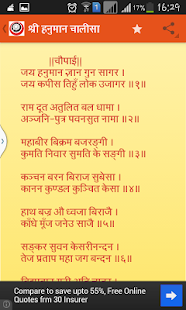 16:29
श्री हनुमान चालीसा
||चौपाई||
जय हनुमान ज्ञान गुन सागर ।
जय कपीस तिहुँ लोक उजागर ॥१॥
राम दूत अतुलित बल धामा ।
अञ्जनि-पुत्र पवनसुत नामा ॥२॥
महाबीर बिक्रम बजरङ्गी ।
कुमति निवार सुमति के सङ्गी ॥३॥
कञ्चन बरन बिराज सुबेसा ।
कानन कुण्डल कुञ्चित केसा ॥४॥
हाथ बज्र औ ध्वजा बिराजै ।
काँधे मूँज जनेउ साजै ॥५॥
सङ्कर सुवन केसरीनन्दन ।
तेज प्रताप महा जग बन्दन ॥६॥
Compare to save upto 55%, Free Online
Quotes frm 30 Insurer